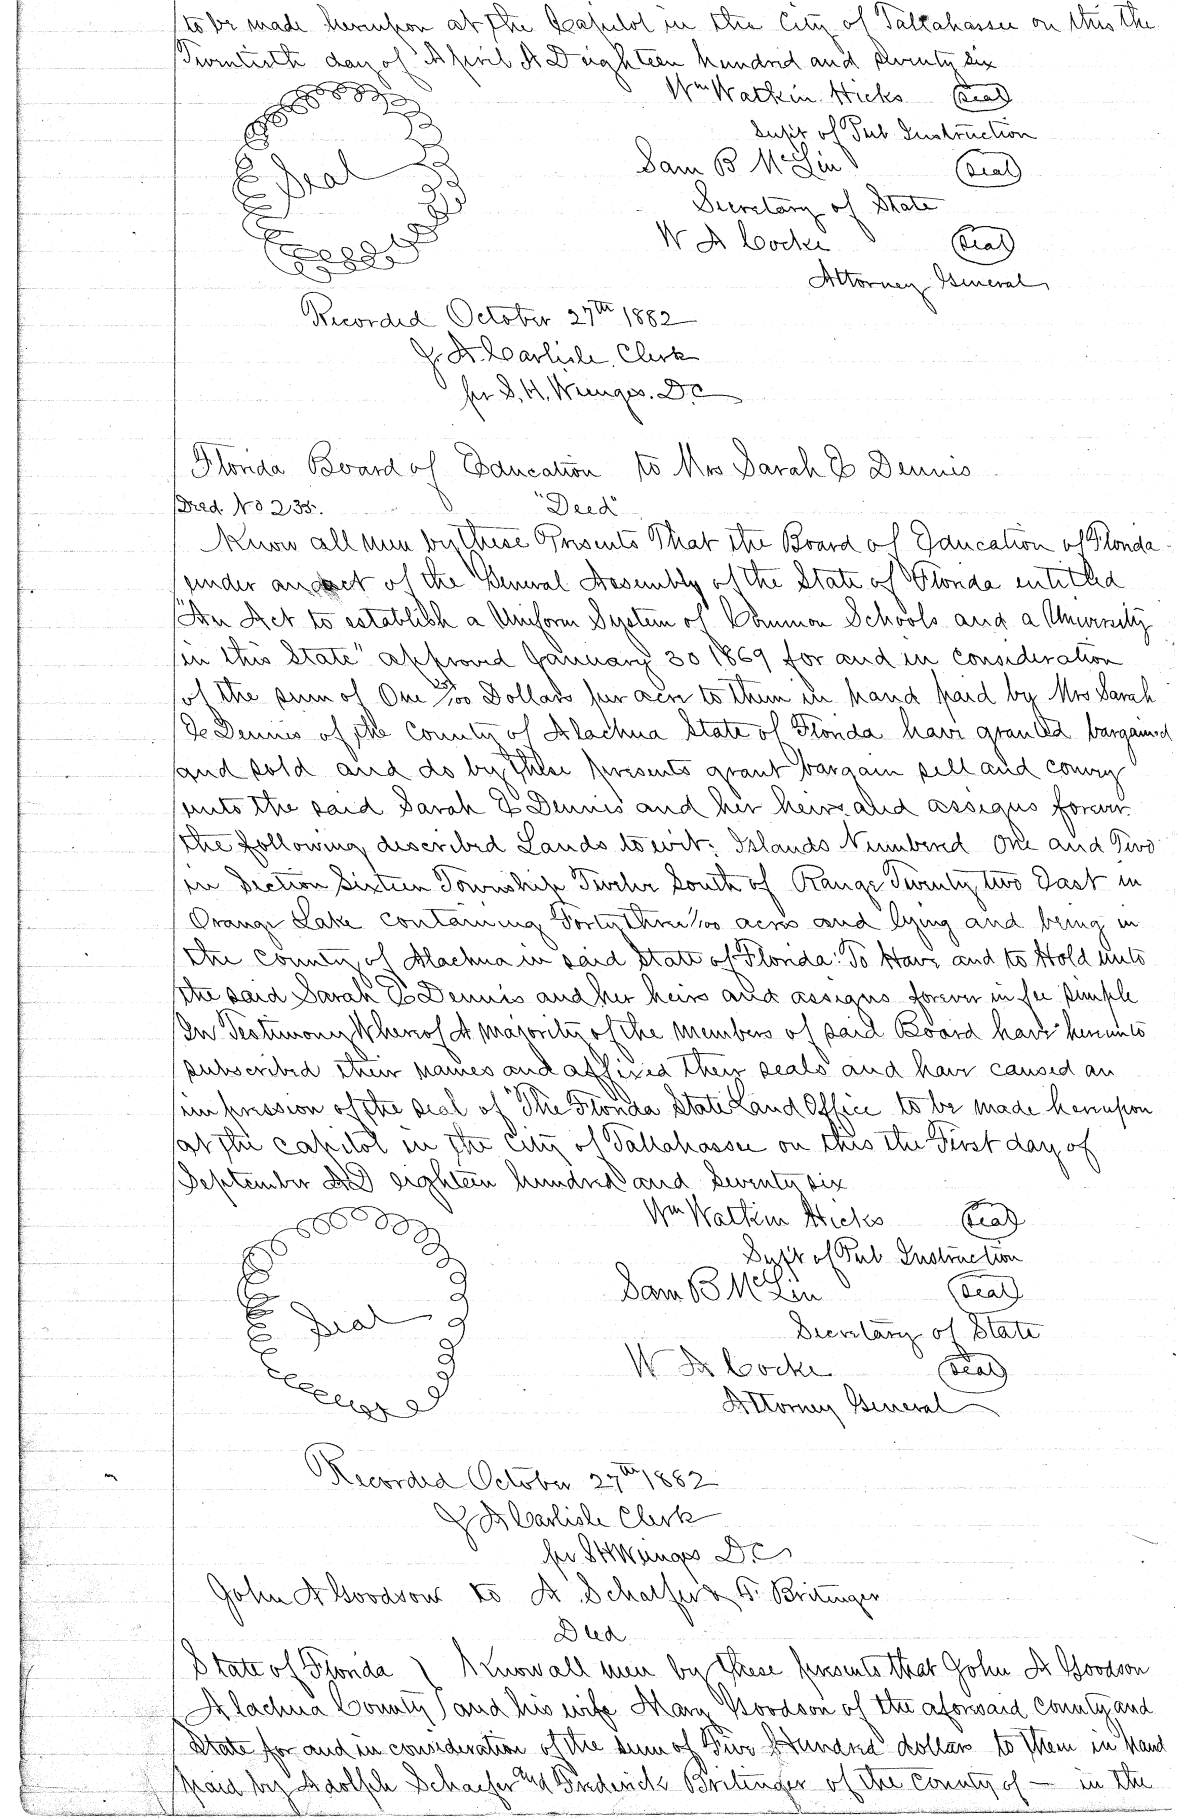 to be made hereupon at the Capitol in the City of Tallahassee on this the
Twentieth day of April A D eighteen hundred and seventy six
Wm Watkin Hicks Seal
Supt of Pub Instruction
Seal
Sam B McLin Seal
Secretary of State
W A Cocke Seal
Attorney General
Recorded October 27th 1882
J. A. Carlisle, Clerk
per S. H. Wienges. D.C
Florida Board of Education to Mrs Sarah E Dennis
Deed. No 235.
"Deed"
Know all men by these Presents That the Board of Education of Florida
under an act of the General Assembly of the State of Florida entitled
"An Act to establish a Uniform System of Common Schools and a University
in this State" approved January 30 1869 for and in consideration
of the sum of One /100 Dollars per acre to them in hand paid by Mrs Sarah
E Dennis of the County of Alachua State of Florida have granted bargained
and sold and do by these presents grant bargain sell and convey
unto the said Sarah E Dennis and her heirs and assigns forever
the following described Lands to wit: Islands Numbered One and Two
in Section Sixteen Township Twelve South of Range Twenty two East in
Orange Lake containing Forty three /100 acres and lying and being in
the County of Alachua in said State of Florida: To Have and to Hold unto
the said Sarah E Dennis and her heirs and assigns forever in fee simple
In Testimony Whereof A majority of the members of said Board have hereunto
subscribed their names and affixed their seals and have caused an
impression of the seal of "The Florida State Land Office to be made hereupon
at the capitol in the City of Tallahassee on this the First day of
September AD eighteen hundred and seventy six
Wm Watkin Hicks Seal
Supt of Pub Instruction
Seal
Sam B McLin Seal
Secretary of State
W A Cocke Seal
Attorney General
Recorded October 27th 1882
J A Carlisle Clerk
per S H Wienges D.C
John A Goodson to A Schaefer & F. Britinger
Deed
State of Florida } Know all men by these presents that John A Goodson
Alachua County } and his wife Mary Goodson of the aforesaid county and
State for and in consideration of the sum of Five Hundred dollars to them in hand
paid by Adolph Schaefer and Frederick Britinger of the county of — in the